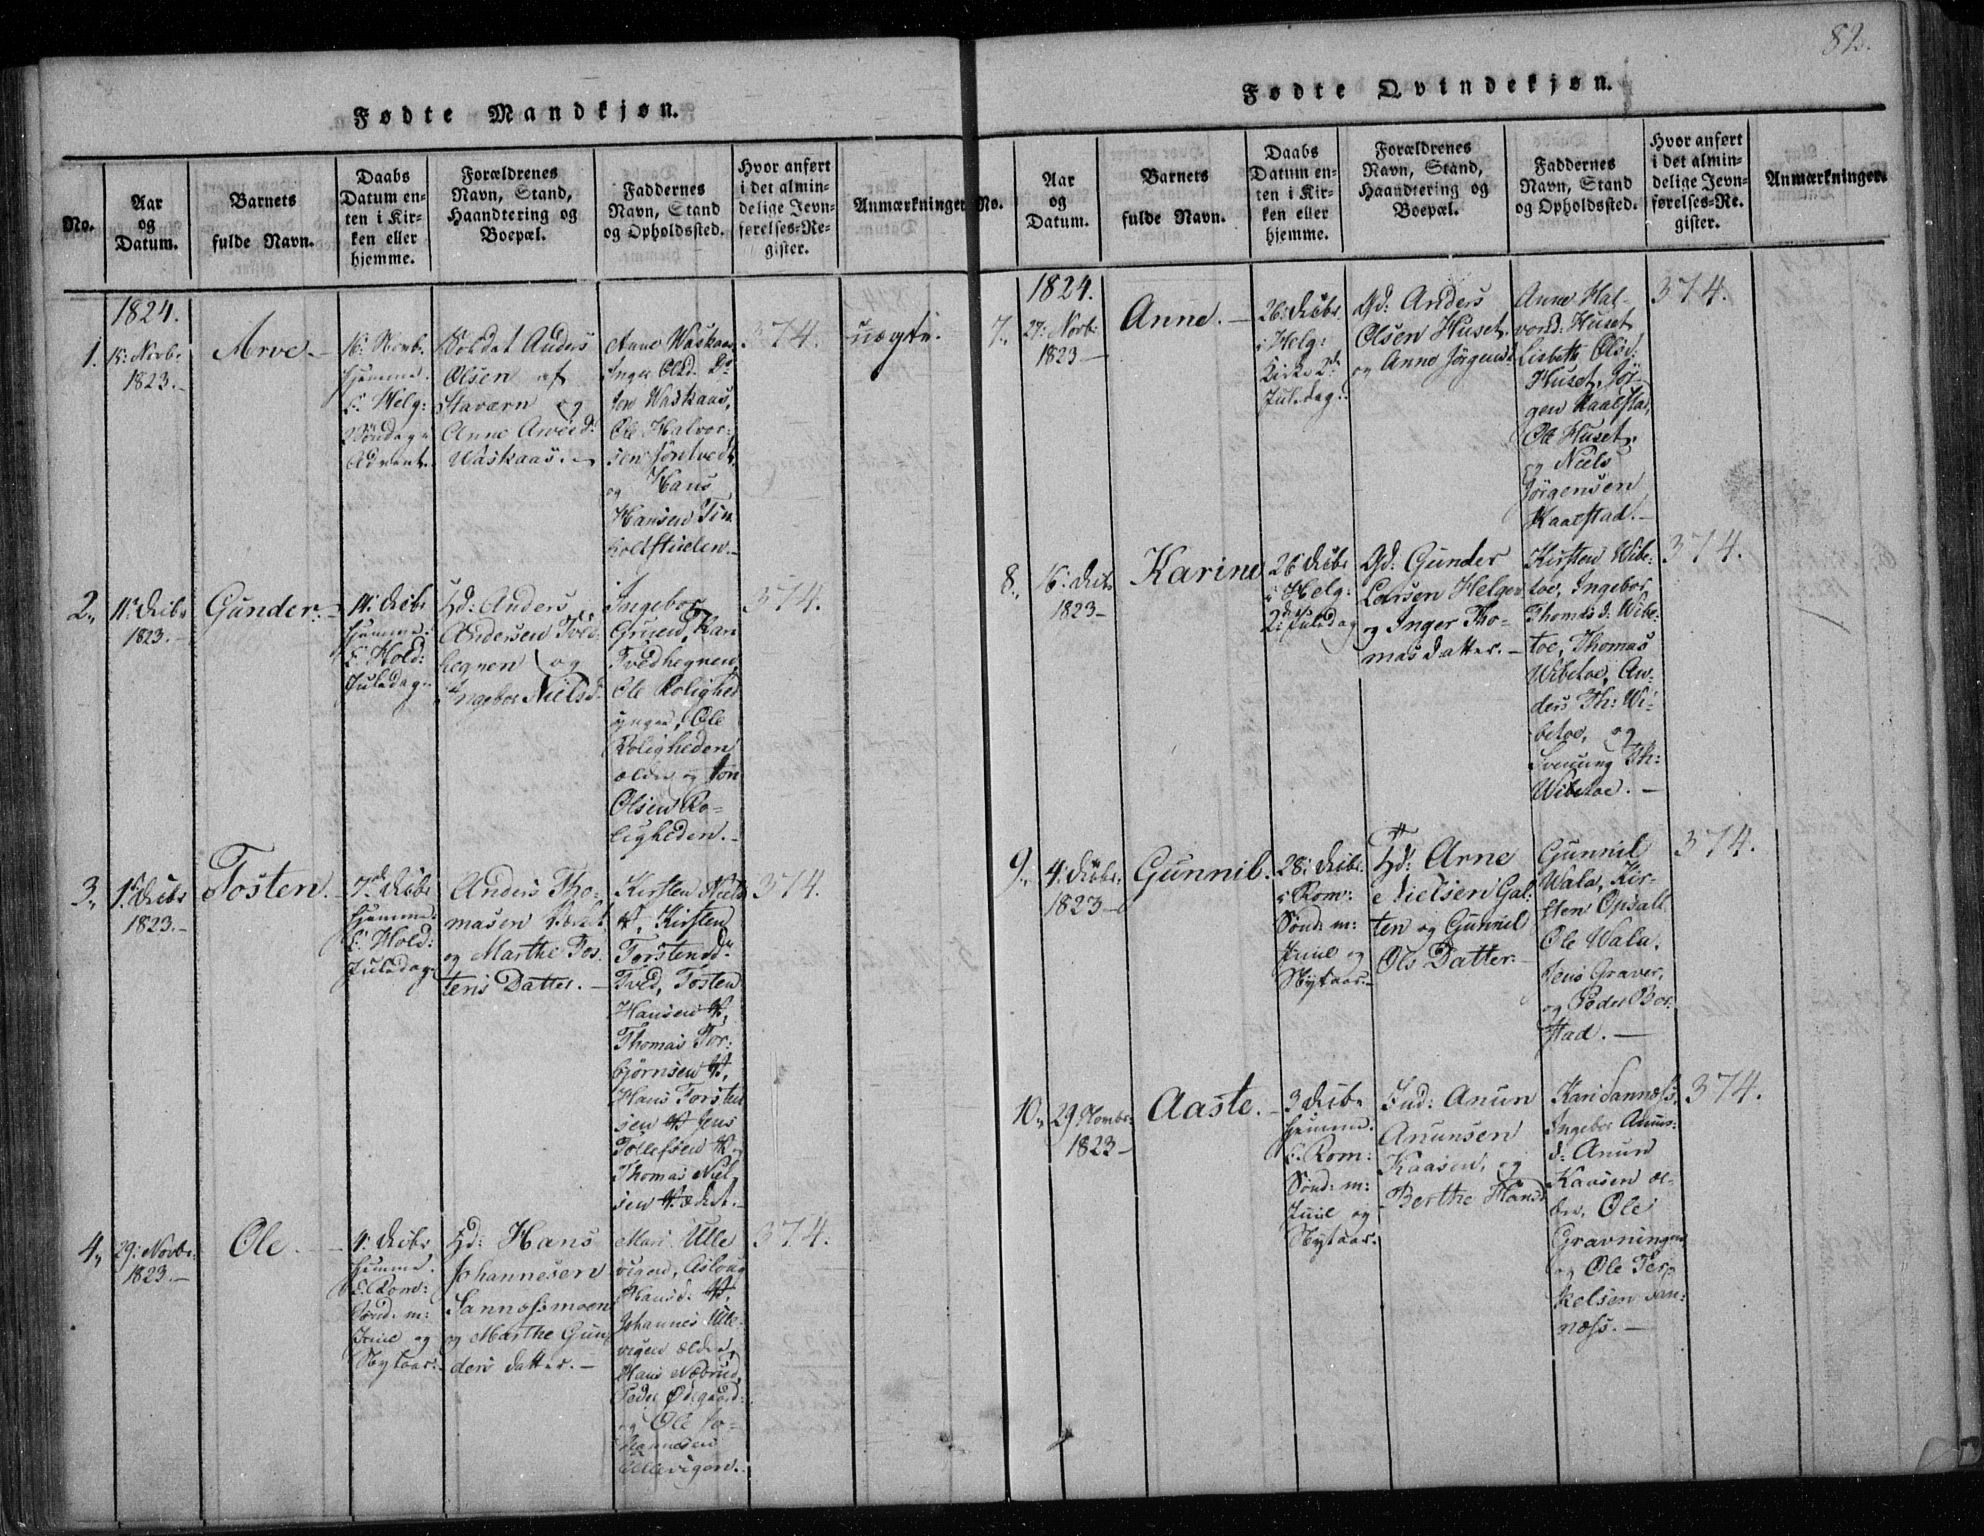 82.
Fødte Mandkjøn.
No.
Aar
og
Datum.
Barnets
fulde Navn.
Daabs
Datum en-
ten i Kir-
ken eller
hjemme.
Forældrenes
Navn, Stand,
Haandtering og
Boepæl.
Faddernes
Navn, Stand
og Opholdssted.
Hvor anført
i det almin-
delige Jevn-
førelses-Re-
gister.
Anmærkninger.
1824.
1.
15: Novbr
1823.-
Arve-
16: Novb.
hjemme.
i Helg:
Søndag
Advent.
Soldat Anders
Olsen af
Staværn og
Anne Arved:
Waskaas.
Anne Waskaas
Inger Olsd.
Waskaas,
Ole Halvor:
sen
og Hans
Hansen
374.
uægte.
2.
11: Decbr
1823.-
Gunder.-
14: Decbr
hjemme.
Hold:
Juledag.
Hd: Anders
Andersen Tved-
hegnen og
Ingebor Nielsd:
Ingebor
Tvedhegnen,
Ole Rolighed
yngre, Ole
Roligheden
ældre og Jon
Olsen Ro-
ligheden.-
374.
3.
1: Decbr
1823.-
Tosten.-
7de Decbr
hjemme.
Hold:
Juledag.
Anders Tho-
masen
og Marthe Tos-
tens Datter.-
Kirsten
Kirsten
Torstensd:
Tved, Tosten
Hansen
Thomas Tor-
bjørnsen
Hans Torsten
sen Jens
Tollefsen
Thomas Niel
sen
374.
4.
29: Novbr:
1823.-
Ole.-
4: Decbr
hjemme.
Rom:
Sønd: m:
Juul og
Nytaar.-
Hd: Hans
Johannesen
Sannessmoen
og Marthe Gun
ders datter.-
Mari Ulle
vigen, Aslaug
Hansd:
Johannes Ulle-
vigen ældre,
Hans Næbrud,
Peder Ødegaard:
og Ole Jo-
hannesen
Ullevigen.
374.
Fødte Qvindekjøn.
No.
Aar
og
Datum.
Barnets
fulde Navn.
Daabs
Datum en-
ten i Kir-
ken eller
hjemme.
Forældrenes
Navn, Stand,
Haandtering og
Boepæl.
Faddernes
Navn, Stand
og Opholdssted.
Hvor anført
i det almin-
delige Jevn-
førelses-Re-
gister.
Anmærkninger.
1824.
7.
27: Novb:
1823-
Anne.-
26: Decbr.
i Helg:
Kirke 2d
Juledag:
Gd: Anders
Olsen Huset.
og Anne Jørgensd:
Anne Hal-
vorsd: Huset,
Lisbeth Olsd:
Huset, Jør-
gen Kaalstad,
Ole Huset,
og Niels
Jørgensen
Kaalstad.-
374.
8.
16: Decbr
1823-
Karine
26 Decbr
i Helg:
2: Juledag
Gd: Gunder
Larsen Helgen
og Inger Tho-
mas datter.-
Kirsten Wibe-
toe, Ingebor
Thomasd: Wibe-
toe, Thomas
Wibetoe, An-
ders Th: Wi-
betoe, og
Svenung Th:
Wibetoe.-
374.
9.
4: Decbr:
1823-
Gunnil.
28: Decbr.
i Rom:
Sønd: m:
Juul og
Nytaar.-
Hd: Arne
Nielsen Gal-
ten og Gunnil
Ols Datter.-
Gunnil
Wala, Kir-
sten Opsall
Ole Wala,
Jens Graver,
og Peder Bor-
stad.-
374.
10.
29 Novbr:
1823-
Aaste.-
3 Decbr
hjemme.
Rom:
Sønd: m:
Juul og
Nytaar.
Ind: Anun
Anunsen
Kaasen, og
Berthe Hansd:
Kari Sannæss,
Ingebor Anuns-
d: Anun
Kaasen æl-
dre, Ole
Gravningen,
og Ole Ter-
kelsen San-
næss.-
374.